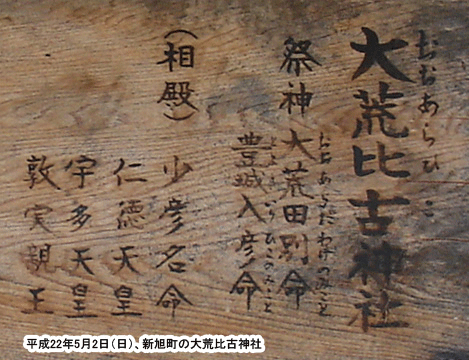 おおあらひこ
大荒比古神社
祭神 大荒田別命
おおあらたわけのみこと
豊城入彦命
とよきいりひこのみこと
(相殿)
少彦名命
仁徳天皇
宇多天皇
敦実親王
平成22年5月2日(日)、新旭町の大荒比古神社